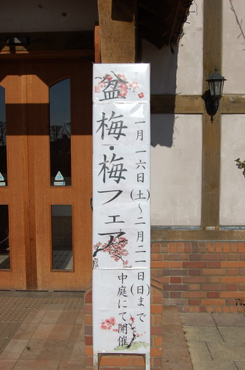 盆梅・梅フェア
一月一六日(土)～二月二一日(日)まで
中庭にて開催